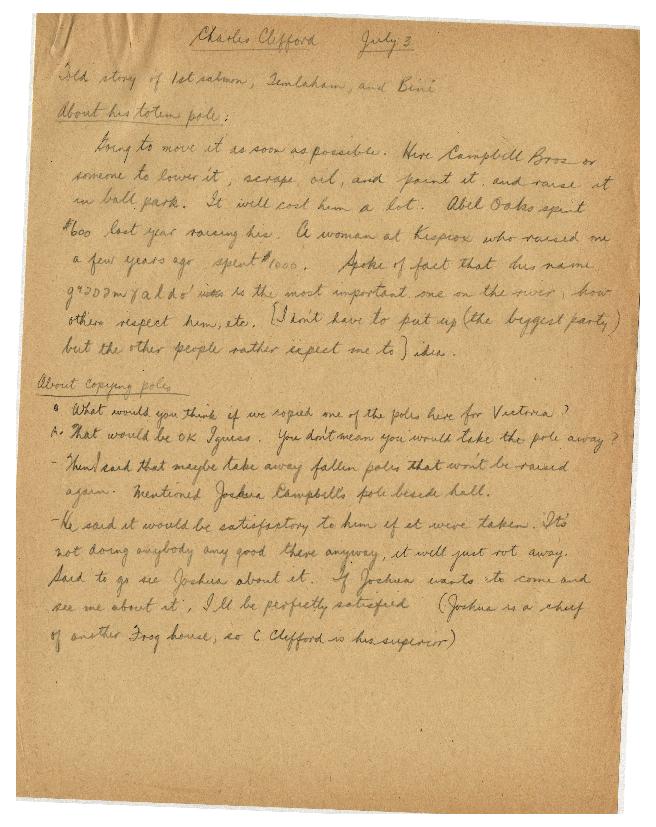 Charles Clifford July 3
Told story of 1st salmon, Temlaham, and Bini
About his totem pole:
Going to move it as soon as possible. Hire Campbell Bros or
someone to lower it, scrape, oil, and paint it, and raise it
in ball park. It will cost him a lot. Abel Oaks spent
$600 last year raising his. A woman at Kispiox who raised me
a few years ago spent $1000. Spoke of fact that his name
is the most important one on the river, how
others respect him, etc. [I don't have to put up (the biggest party)
but the other people rather expect me to] idea.
About copying poles
Q What would you think if we copied one of the poles here for Victoria?
A. That would be OK I guess. You don't mean you would take the pole away?
- Then I said that maybe take away fallen poles that won't be raised
again. Mentioned Joshua Campbell's pole beside hall.
- He said it would be satisfactory to him if it were taken. It's
not doing anybody any good there anyway, it will just rot away.
Said to go see Joshua about it. If Joshua wants to come and
see me about it, I'll be perfectly satisfied (Joshua is a chief
of another Frog house, so C Clifford is his superior)